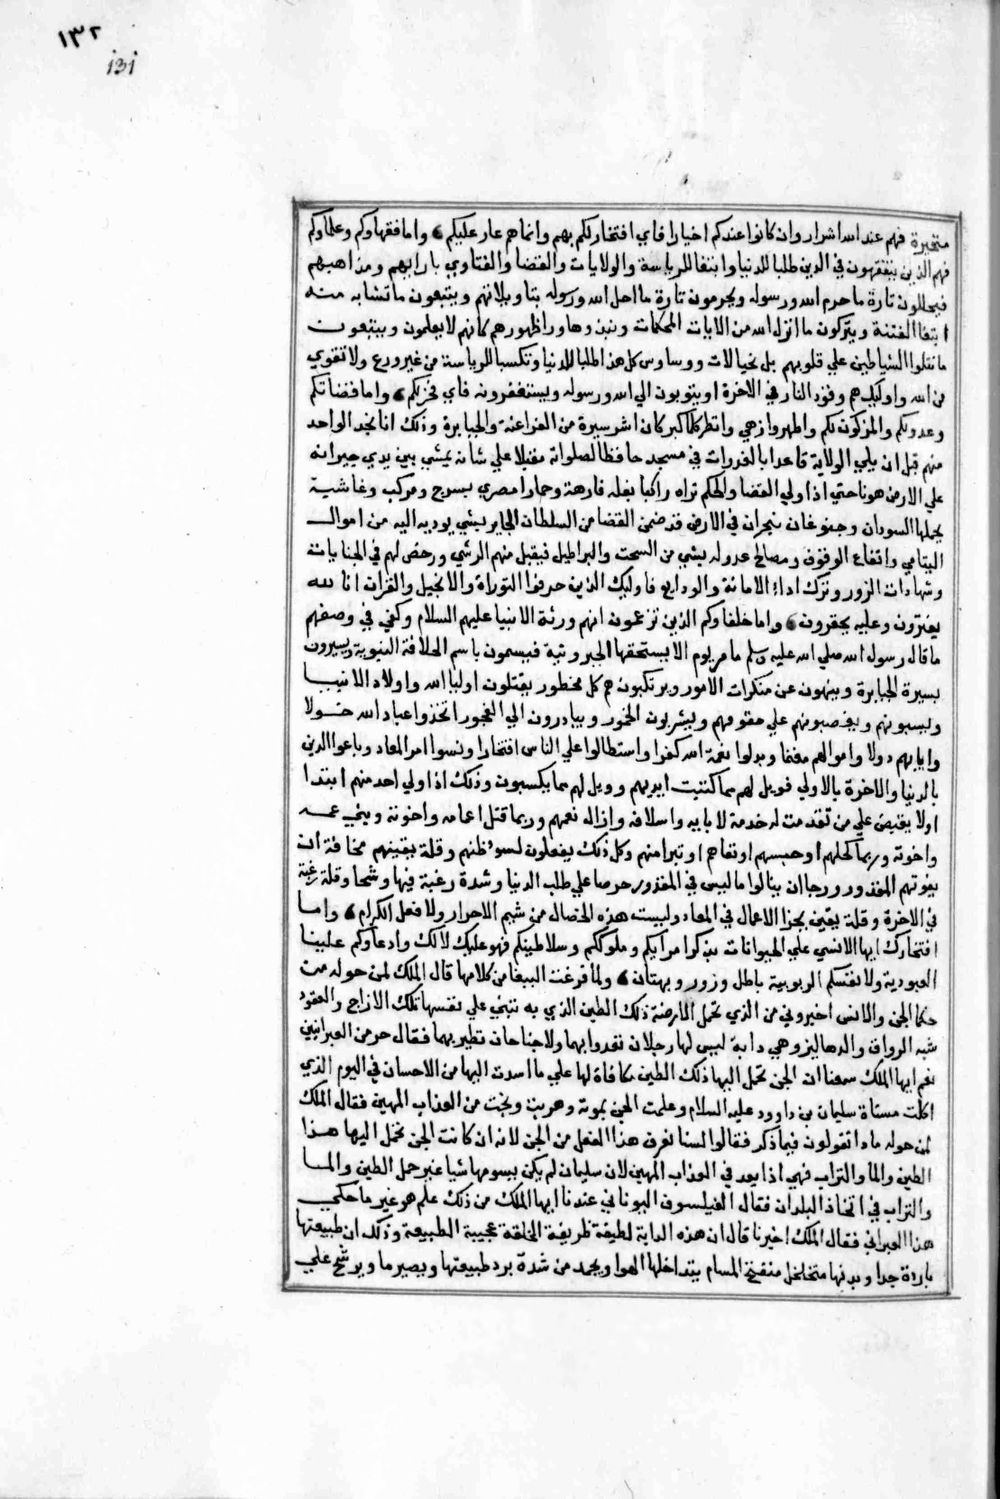 ١٣٢
131
متحيرة فهم عند الله اشرار وان كانوا عندكم اخيارا فاي افتخار لكم بهم وانما هم عار عليكم، واما فقهاوكم وعلماوكم
فهم الذين يتفقهون في الدين طلبا للدنيا وابتغا للرياسة والولايات والقضا والفتاوي بارايهم ومذاهبهم
فيحللون تارة ما حرم الله ورسوله ويحرمون تارة ما احل الله ورسوله بتاويلاتهم ويتبعون ما تشابه منه
ابتغا الفتنة ويتركون ما انزل الله من الايات المحكمات ونبذوها ورا ظهورهم كانهم لا يعلمون ويتبعون
ما تتلوا الشياطين علي قلوبهم بل خيالات ووساوس كل هذا طلبا للدنيا وتكسبا للرياسة من غير ورع ولا تقوي
من الله واوليك هم وقود النار في الاخرة او يتوبون الي الله ورسوله ويستغفرونه فاي فخر لكم، واما قضاتكم
وعدولكم والمزكون لكم واطهر وازهي وانظر كلما كبر كان اشر سيرة من الفراعنة والجبابرة وذلك انا نجد الواحد
منهم قبل ان يلي الولاية قاعدا بالغدوات في مسجد حافظا لصلواته مقبلا علي شانه يمشي بين يدي جيرانه
علي الارض هونا حتي اذا ولي القضا والحكم تراه راكبا بغله فارهة وحمارا مصري بسرج ومركب وغاشية
يحملها السودان وجنوغان ينجران في الارض قد ضمن القضا من السلطان الجاير بشي يوديه اليه من اموال
اليتامي وانقاع الوقوف ومصالح عدوله بشي من السحت والبراطيل فيقبل منهم الرشي ورخص لهم في الجنايات
وشهادات الزور وترك اداء الامانة والودايع فاوليك الذين حرفوا التوراة والانجيل والقران انا لله
يغترون وعليه يحقرون، واما خلفاوكم الذين تزعمون انهم ورثة الانبيا عليهم السلام وكفي في وصفهم
ما قاله رسول الله صلي الله عليه وسلم ما من يوم الا يستحقها الجبروتية فيسمون باسم الخلافة النبوية ويسيرون
بسيرة الجبابرة وينهون عن منكرات الامور ويرتكبون هم كل محظور يقتلون اوليا الله واولاد الانبيا
ويسبونهم ويغصبونهم علي حقوقهم ويشربون الخمور ويبادرون الي الفجور اتخذوا عباد الله خولا
وايامهم دولا واموالهم مغنما وبدلوا نعمة الله كفرا واستطالوا علي الناس افتخارا ونسوا امر المعاد وباعوا الدين
بالدنيا والاخرة بالاولي فويل لهم مما كتبت ايديهم وويل لهم مما يكسبون وذلك اذا ولي احد منهم ابتدا
اولا يقبض علي من تقدمت له خدمة لابايه واسلافه وازاله نعمهم وربما قتل اعمامه واخوته وبني عمه
واخوته وربما كحلهم او حبسهم او نفاهم او تبرا منهم وكل ذلك يفعلون لسوء ظنهم وقلة يقينهم مخافة ان
يفوتهم المقدور ورجا ان ينالوا ما ليس في المقدور حرصا علي طلب الدنيا وشدة رغبة فيها وشحا وقلة رغبة
في الاخرة وقلة يقين بجزا الاعمال في المعاد وليست هذه الخصال من شيم الاحرار ولا فعل الكرام، واما
افتخارك ايها الانسي علي الحيوانات بذكر امرايكم وملوككم وسلاطينكم فهو عليك لا لك وادعاوكم علينا
العبودية ولانفسكم الربوبية باطل وزور وبهتان، ولما فرغت الببغا من كلامها قال الملك لمن حوله من
حكما الجن والانس اخبروني من الذي تحمل الارضة ذلك الطين الذي به تبني علي نفسها تلك الازاج والعقود
شبه الرواق والدهاليز وهي دابة ليس لها رجلان تعدوا بهما ولا جناحان تطير بهما فقال حر من العبرانيين
نعم ايها الملك سمعنا ان الجن تحمل اليها ذلك الطين مكافاة لها علي ما اسدت اليها من الاحسان في اليوم الذي
اكلت منساة سليمان بن داوود عليه السلام وعلمت الجن بموته وهربت ونجت من العذاب المهين فقال الملك
لمن حوله ماذا تقولون فيما ذكر فقالوا لسنا نعرف هذا الفعل من الجن لانه ان كانت الجن تحمل اليها هذا
الطين والما والتراب فهي اذا بعد في العذاب المهين لان سليمان لم يكن يسومها شيا غير حمل الطين والما
والتراب في اتخاذ البلدان فقال الفيلسوف اليوناني عندنا ايها الملك من ذلك علم هو غير ما حكي
هذا العبراني فقال الملك اخبرنا قال ان هذه الدابة لطيفة ظريفة الخلقة عجيبة الطبيعة وذلك ان طبيعتها
باردة جدا وبدنها متخلخل منفتح المسام يتداخلها الهوا ويجمد من شدة برد طبيعتها ويصير ما ويرشح علي